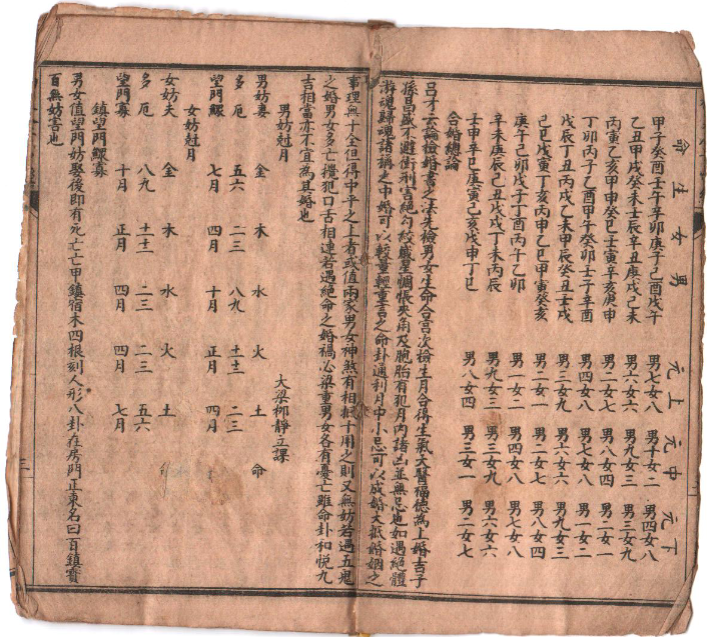 命生女男 元上 元中 元下
甲子癸酉壬午辛卯庚子己酉戊午 男七女八 男十女二 男四女八
乙丑甲戌癸未壬辰辛丑庚戌己未 男六女六 男九女三 男三女九
丙寅乙亥甲申癸巳壬寅辛亥庚申 男二女七 男八女四 男二女一
丁卯丙子乙酉甲午癸卯壬子辛酉 男四女八 男七女八 男一女二
戊辰丁丑丙戌乙未甲辰癸丑壬戌 男三女九 男六女六 男九女三
己巳戊寅丁亥丙申乙巳甲寅癸亥 男二女一 男二女七 男八女四
庚午己卯戊子丁酉丙午乙卯 男一女二 男四女八 男七女八
辛未庚辰己丑戊戌丁未丙辰 男九女三 男三女九 男六女六
壬申辛巳庚寅己亥戊申丁巳 男八女四 男三女一 男二女七
合婚總論
呂才云論檢婚書之法先檢男女生命合宮次檢生月合得生氣天醫福德為上婚吉子
孫昌盛不避衝刑宮絕勾絞歲星惆悵夾角及胞胎有犯月內諸凶並無忌也如遇絕體
遊魂歸魂諸稱之中婚可以較量輕重言之命卦通利月中小忌可以成婚大抵婚姻之
事理無十全但得中平之上者或值兩家男女神煞有相抵十用之則又無妨若遇五鬼
之婚男女多亡攪犯口舌相連若遇絕命之婚禍心染重男女各有憂亡雖命卦和悅九
吉相當亦不宜為其婚也
大梁柳靜立課
男妨尅月
男妨妻 金 木 水 火 土 命
多厄 五六 二三 八九 十十二 二三
望門鰥 七月 四月 十月 正月 四月
女妨尅月
女妨夫 金 木 水 火 土
多厄 八九 十十二 二三 二三 五六
望門寡 十月 正月 四月 四月 七月
鎮望門鰥寡
男女值望門妨娶後即有死亡亡甲鎮宿木四根刻人形八卦在房門正東名曰百鎮賓
百無妨害也
三